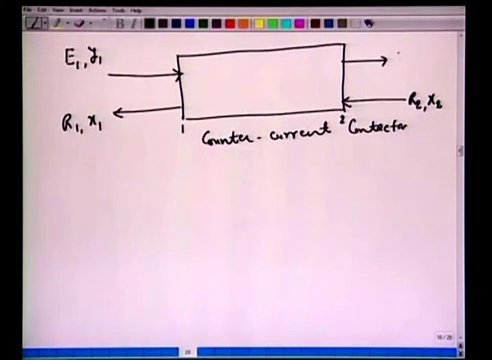 File Edit View Insert Actions Tools Help
E₁, y₁
R₁, x₁
R₂, x₂
1
2
Counter-current Contactor